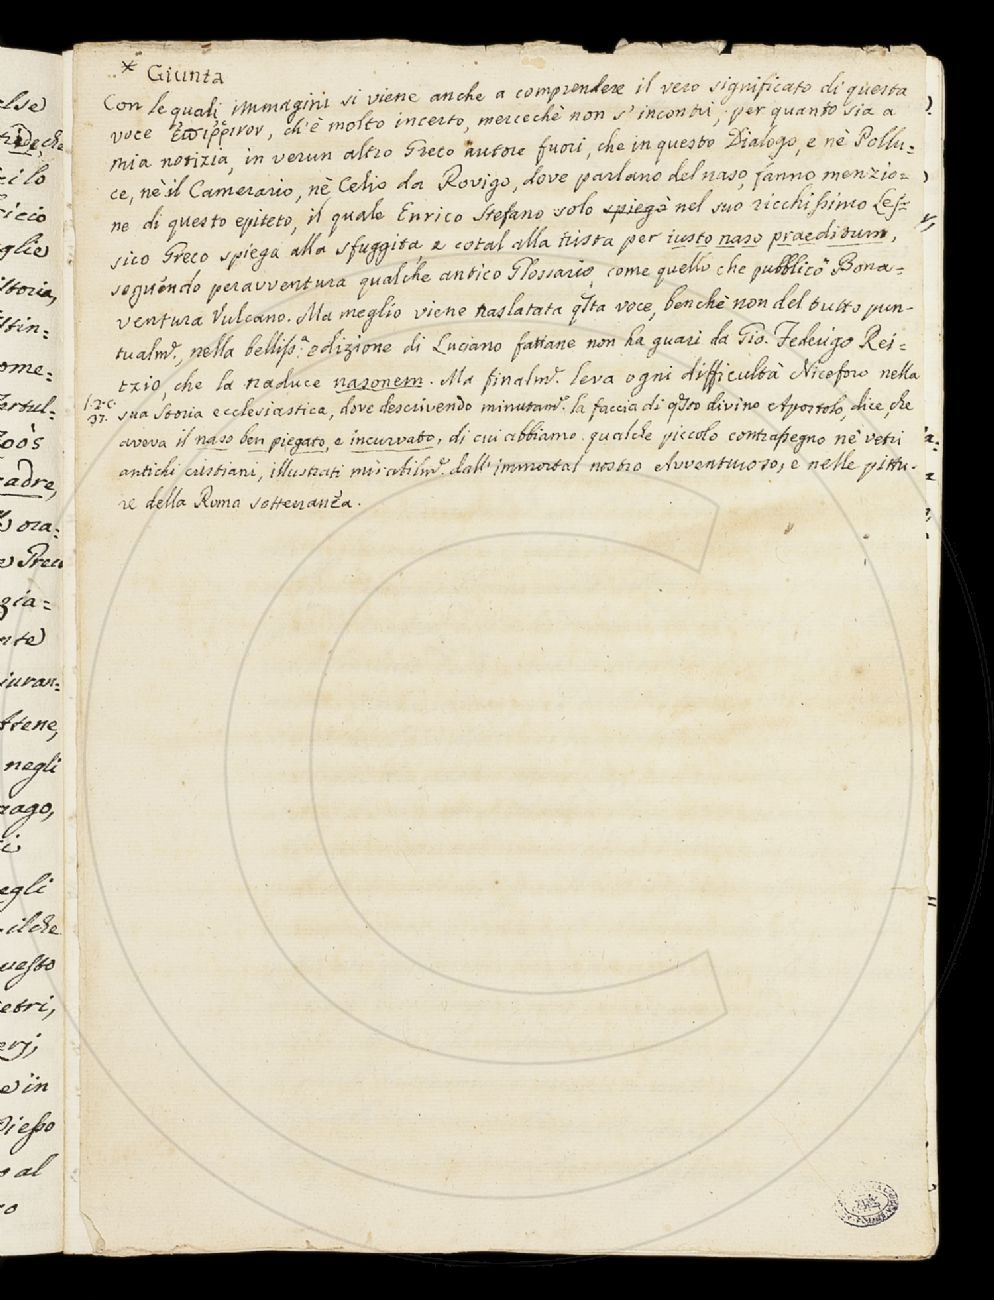 * Giunta
Con le quali immagini si viene anche a comprendere il vero significato di questa
voce ἐπίρρινον, ch'è molto incerto, mercechè non s'incontri, per quanto sia a
mia notizia, in verun altro Greco autore fuori, che in questo Dialogo, e nè Pollu=
ce, nè il Camerario, nè Celio da Rovigo, dove parlano del naso, fanno menzio=
ne di questo epiteto, il quale Enrico Stefano solo spiega nel suo ricchissimo Les=
sico Greco spiega alla sfuggita e cotal alla trista per iusto naso praeditum,
seguendo peravventura qualche antico Glossario, come quello che pubblicò Bona=
ventura Vulcano. Ma meglio viene traslatata qsta voce, benchè non del tutto pun-
tualmte, nella belliss.a edizione di Luciano fattane non ha guari da Gio. Federigo Rei=
tzio, che la traduce nasonem. Ma finalmte leva ogni difficultà Niceforo nella
l. 2. c. 37.
sua storia ecclesiastica, dove descrivendo minutamte la faccia di qsto divino Apostolo, dice, che
aveva il naso ben piegato, e incurvato, di cui abbiamo qualche piccolo contrassegno ne' vetri
antichi cristiani, illustrati mirabilmte dall'immortal nostro Avventuroso, e nelle pittu-
re della Roma sotterranea.
else
che
ci lo
iccio
glie
storia,
stin=
ome=
Tertul=
adre,
ora=
Greco
gia=
nte
iuran=
Atene,
negli
rago,
egli
il che
uesto
etri,
erj,
e in
o al